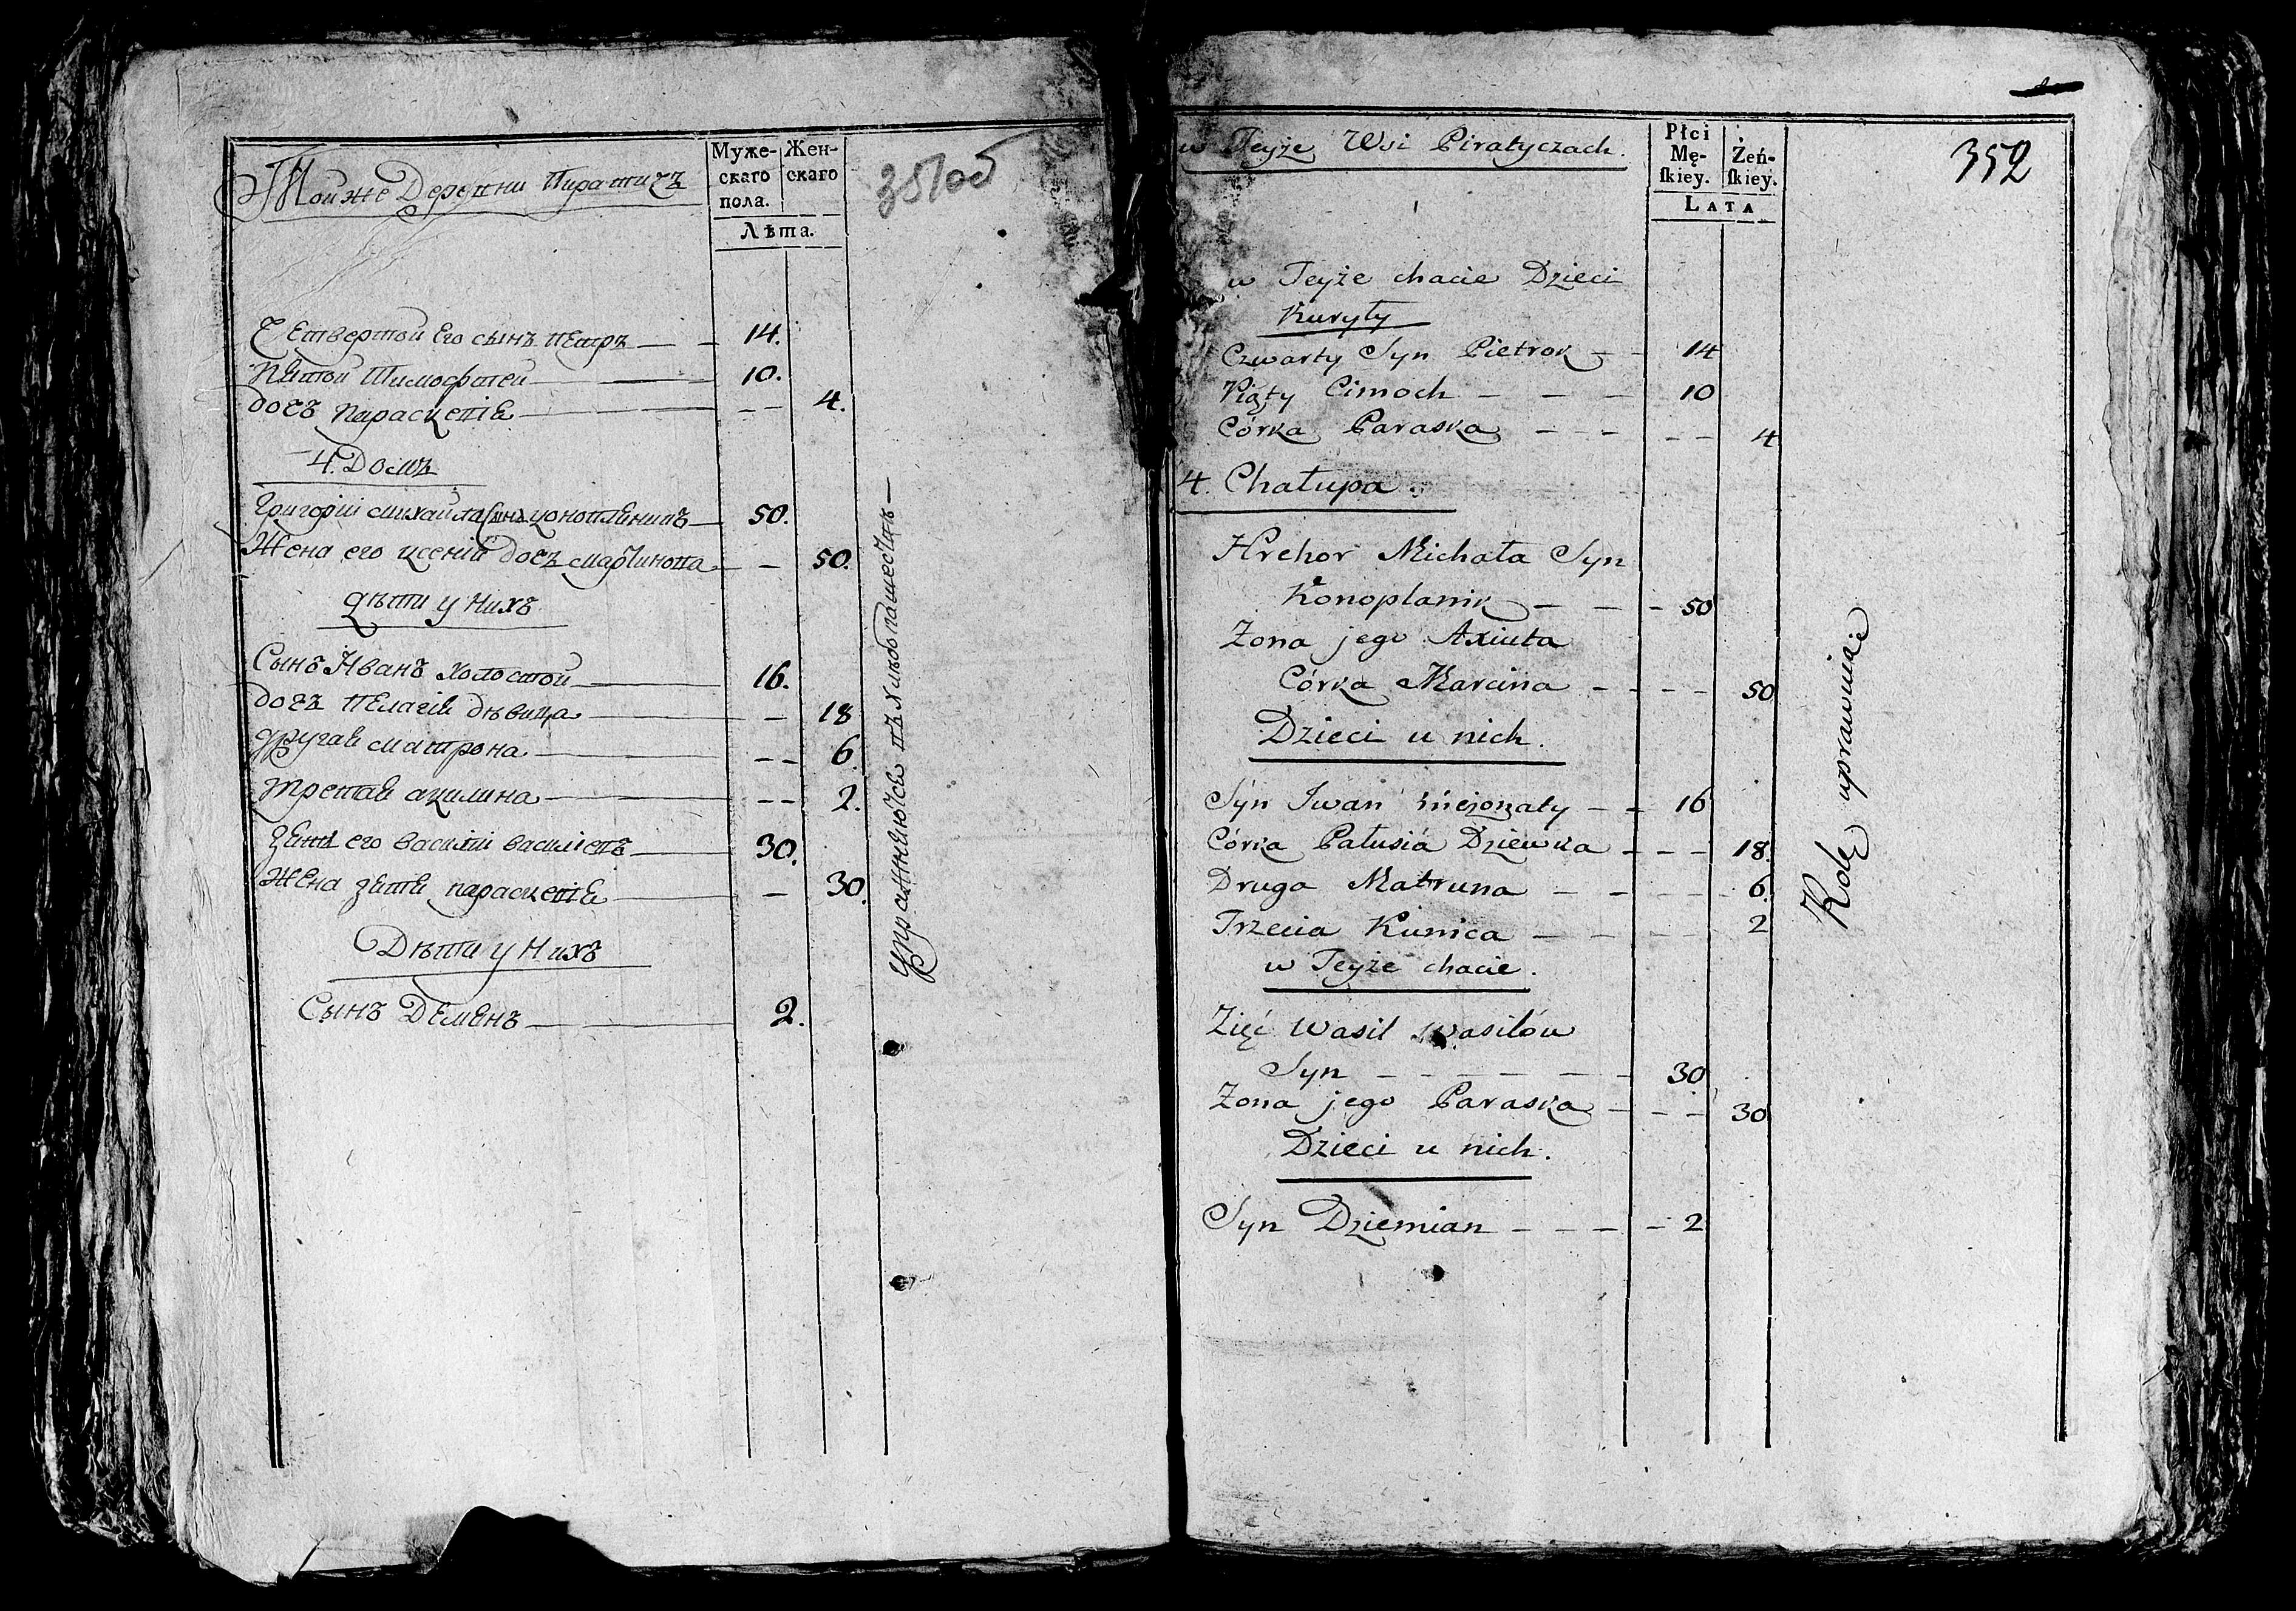 Тойже Деревни Пиратичъ
Муже-
скаго
пола.
Жен-
скаго
Лѣта.
351об
Четвертой его сынъ Петръ — — 14.
Пятой Тимофтей — — 10.
дочь Параскевія — — 4.
4. Домъ
Григорій Михайла сынъ Коноплянникъ — 50.
Жена его Ксенія дочь Мартинова — — 50.
Дѣти у Нихъ
Сынъ Иванъ холостой — 16.
дочь Пелагія дѣвица — — 18
другая Матрона — — 6.
третая Акилина — — 2.
Зять его Василій Васильевъ — 30.
Жена зятя Параскевія — — 30.
Дѣти у Нихъ
Сынъ Демянъ — 2.
Упражняются въ хлебопашестве —
w Teyże Wsi Piratyczach.
Płci
Mę-
skiey.
Żeń-
skiey.
LATA
352
w Teyże chacie Dzieci
Kuryły
Czwarty Syn Pietrok — — 14
Piąty Cimoch — — — 10
Córka Paraska — — — — — 4
4. Chałupa.
Hrehor Michała Syn
Konoplanik — — — 50
Żona jego Axiuta
Córka Marcina — — — — 50
Dzieci u nich.
Syn Iwan nieżonaty — — 16
Córka Pałusia Dziewka — — — 18.
Druga Matruna — — — — 6.
Trzecia Kiunica — — — — 2
w Teyże chacie.
Zięć Wasil Wasilów
Syn — — — — — 30
Żona jego Paraska — — — 30
Dzieci u nich.
Syn Dziemian — — — — 2
Rolę uprawniaią